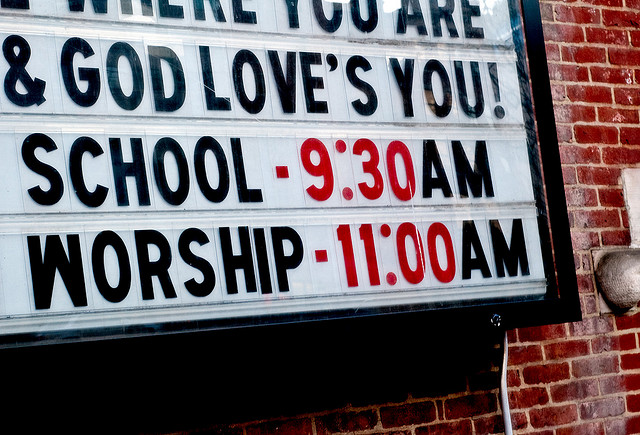 WHERE YOU ARE
& GOD LOVE'S YOU!
SCHOOL - 9:30AM
WORSHIP - 11:00AM